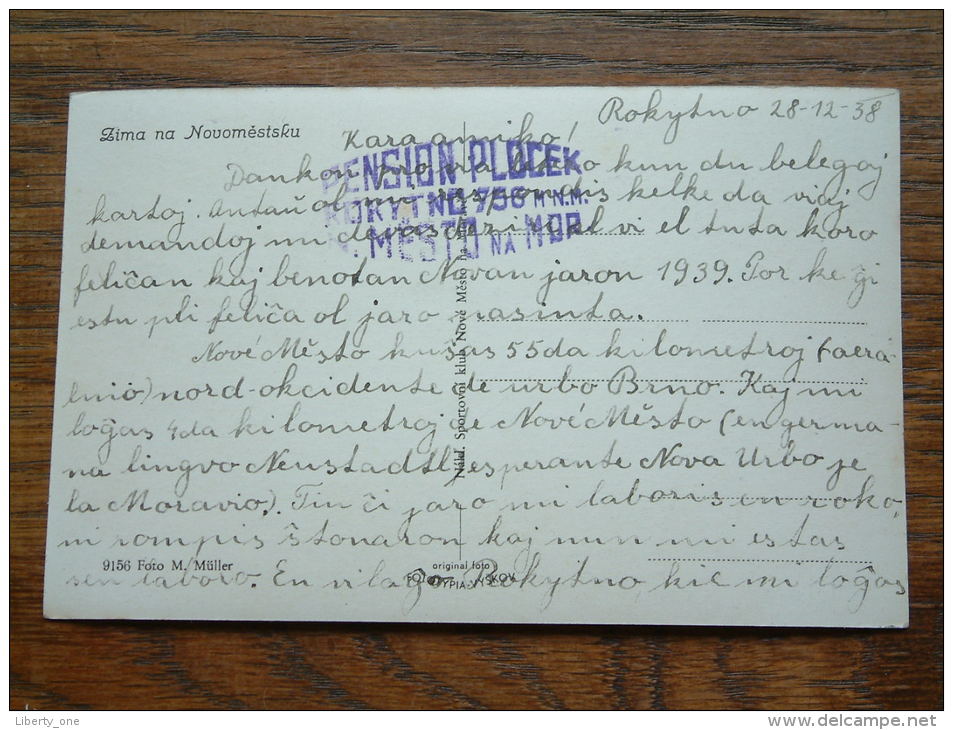 Rokytno 28-12-38
Zima na Novoměstsku
Kara amiko!
PENSION PLOCEK
ROKYTNO 756 M N.M.
N. MĚSTO NA MOR.
Dankon pro via letero kun du belegaj
kartoj. Antaŭ ol mi respondas kelke da viaj
demandoj mi devas deziri al vi el tuta koro
feliĉan kaj bonotan Novan jaron 1939. Por ke ĝi
estu pli feliĉa ol jaro pasinta.
Nové Město kuŝas 55da kilometroj (aera
linio) nord-okcidente de urbo Brno. Kaj mi
loĝas 4da kilometroj de Nové Město (en germa-
na lingvo Neustadtl, esperante Nova Urbo je
la Moravio). Tiun ĉi jaro mi laboris en roko,
mi rompis ŝtonaron kaj nun mi estas
sen laboro. En vilaĝo Rokytno, kie mi loĝas
Nákl. Sportovní klub Nové Město na
9156 Foto M. Müller
original foto
FOTOTYPIA-VYŠKOV
Liberty_one
www.delcampe.net